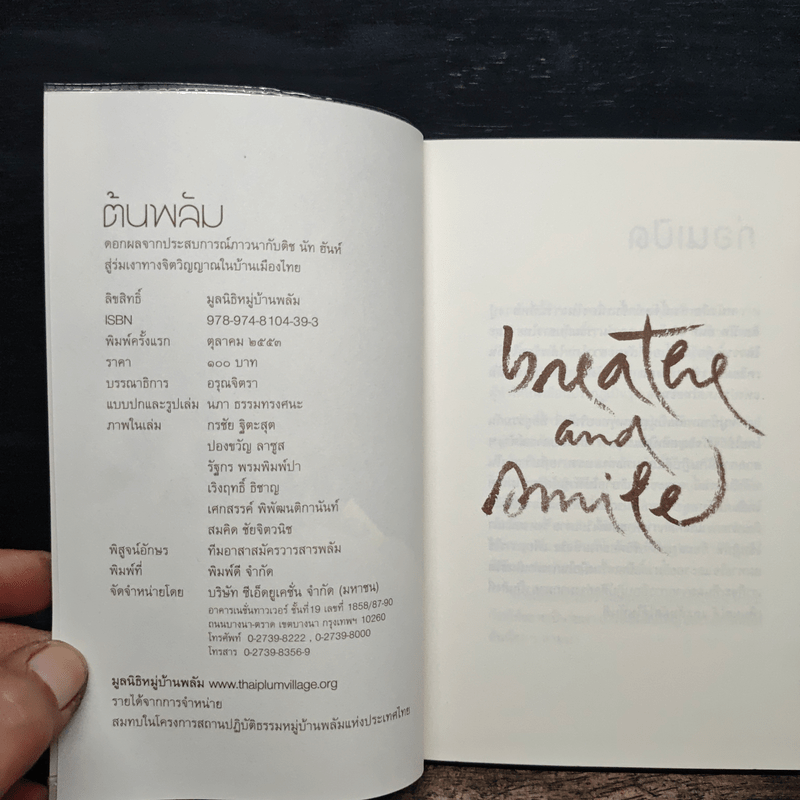 ต้นพลัม
ดอกผลจากประสบการณ์ภาวนากับติช นัท ฮันห์
สู่ร่มเงาทางจิตวิญญาณในบ้านเมืองไทย
ลิขสิทธิ์ มูลนิธิหมู่บ้านพลัม
ISBN 978-974-8104-39-3
พิมพ์ครั้งแรก ตุลาคม ๒๕๕๓
ราคา ๑๐๐ บาท
บรรณาธิการ อรุณจิตรา
แบบปกและรูปเล่ม นภา ธรรมทรงศนะ
ภาพในเล่ม กรชัย ฐิตะสุต
ปองขวัญ ลาซูส
รัฐกร พรมพิมพ์ปา
เริงฤทธิ์ ธิชาญ
เศกสรรค์ พิพัฒนติกานันท์
สมคิด ชัยจิตวนิช
พิสูจน์อักษร ทีมอาสาสมัครวารสารพลัม
พิมพ์ที่ พิมพ์ดี จำกัด
จัดจำหน่ายโดย บริษัท ซีเอ็ดยูเคชั่น จำกัด (มหาชน)
อาคารเนชั่นทาวเวอร์ ชั้นที่ 19 เลขที่ 1858/87-90
ถนนบางนา-ตราด เขตบางนา กรุงเทพฯ 10260
โทรศัพท์ 0-2739-8222 , 0-2739-8000
โทรสาร 0-2739-8356-9
มูลนิธิหมู่บ้านพลัม www.thaiplumvillage.org
รายได้จากการจำหน่าย
สมทบในโครงการสถานปฏิบัติธรรมหมู่บ้านพลัมแห่งประเทศไทย
breathe
and
smile
ก่อนเปิด